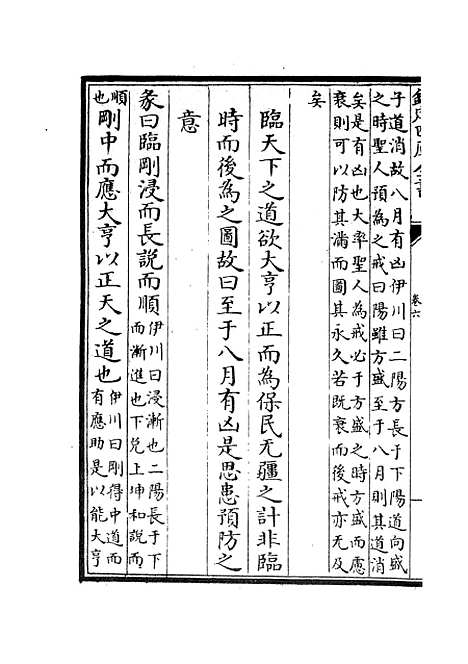 子道消故八月有凶伊川曰二陽方長于下陽道向盛
之時聖人預為之戒曰陽雖方盛至于八月則其道消
矣是有凶也大率聖人為戒必于方盛之時方盛而慮
衰則可以防其滿而圖其永久若既衰而後戒亦无及
矣
臨天下之道欲大亨以正而為保民无疆之計非臨
時而後為之圖故曰至于八月有凶是思患預防之
意
彖曰臨剛浸而長說而順伊川曰浸漸也二陽長于下
而漸進也下兑上坤和說而
順
也剛中而應大亨以正天之道也伊川曰剛得中道而
有應助是以能大亨
卷六